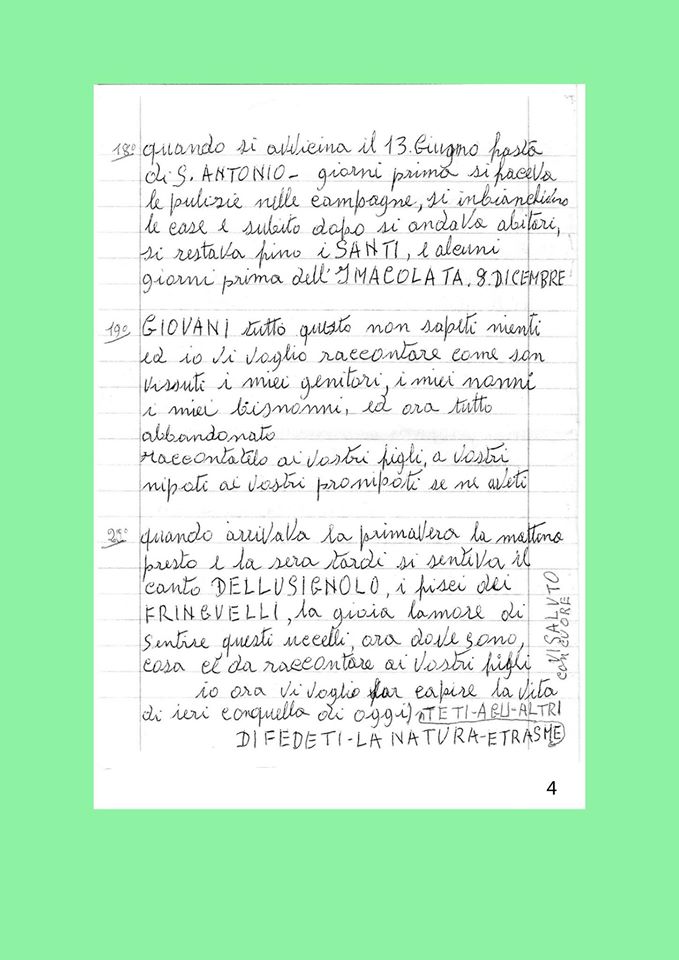 18º quando si avvicina il 13. Giugno festa
di S. ANTONIO - giorni prima si faceva
le pulizie nelle campagne, si inbianchidno
le case e subito dopo si andava abitari,
si restava fino i SANTI, e alcuni
giorni prima dell'IMACOLATA. 8. DICEMBRE
19º GIOVANI tutto questo non sapeti nienti
ed io vi voglio raccontare come son
vissuti i miei genitori, i miei nonni
i miei bisnonni, ed ora tutto
abbandonato
raccontatelo ai vostri figli, a vostri
nipoti ai vostri pronipoti se ne aveti
quando arrivava la primavera la mattina
presto e la sera tardi si sentiva il
canto DELLUSIGNOLO, i fisci dei
FRINGUELLI, la gioia lamore di
sentire questi uccelli, ora dove sono,
cosa cé da raccontare ai vostri figli
io ora vi voglio far capire la vita
di ieri conquella di oggi)
DIFEDETI-LA NATURA-ETRASME
VI SALVTO
con CUORE
4